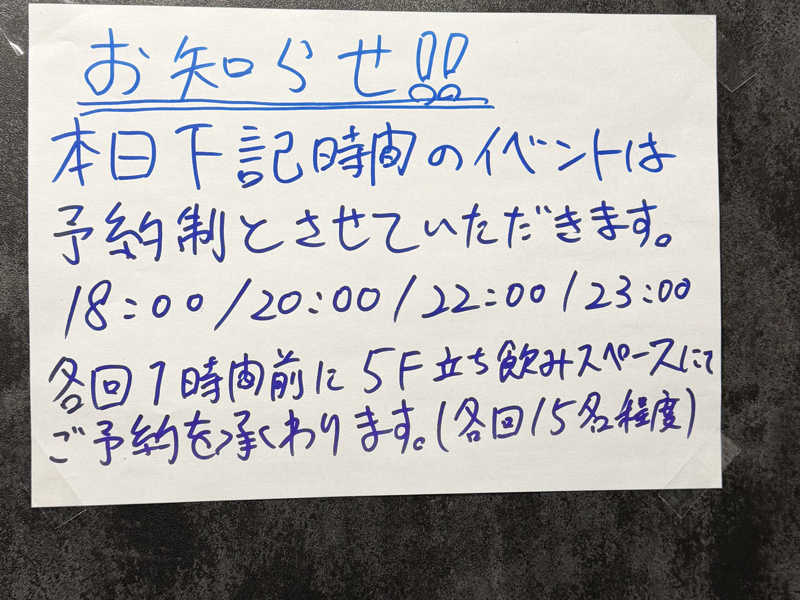 お知らせ!!
本日下記時間のイベントは
予約制とさせていただきます。
18:00/20:00/22:00/23:00
各回1時間前に5F立ち飲みスペースにて
ご予約を承くわります。(各回15名程度)